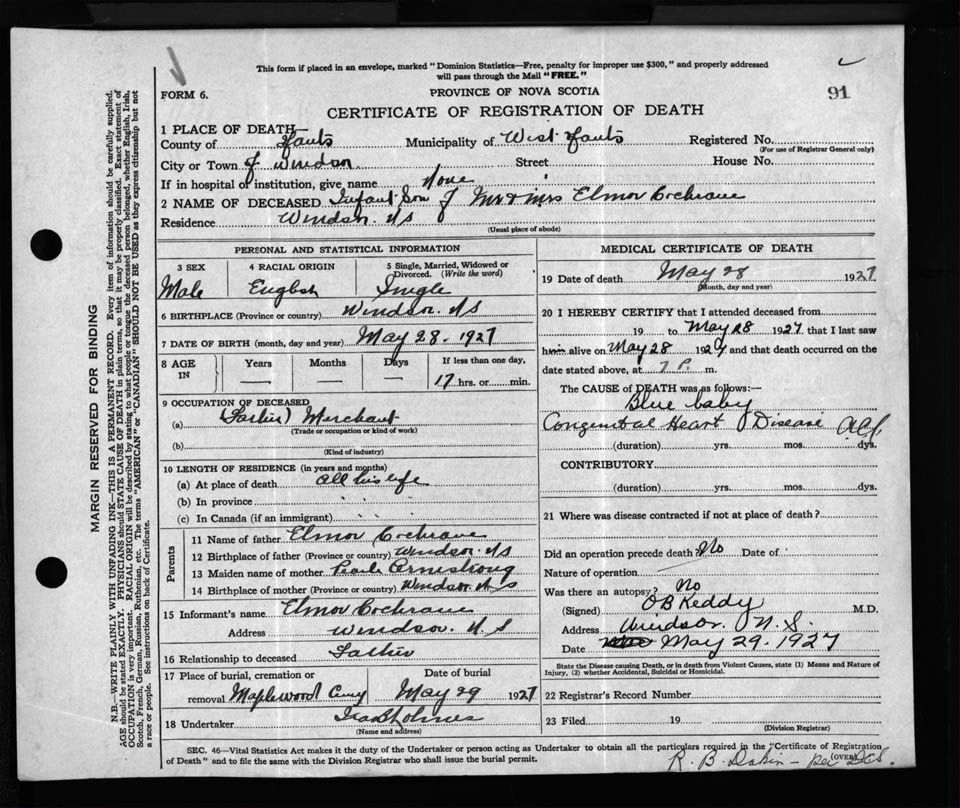 This form if placed in an envelope, marked "Dominion Statistics—Free, penalty for improper use $300," and properly addressed
will pass through the Mail "FREE."
FORM 6.
PROVINCE OF NOVA SCOTIA
91
CERTIFICATE OF REGISTRATION OF DEATH
1 PLACE OF DEATH—
County of Hants Municipality of West Hants Registered No.
(For use of Registrar General only)
City or Town of Windsor Street House No.
If in hospital or institution, give name None
2 NAME OF DECEASED Infant Son of Mr & Mrs Elmor Cochrane
Residence Windsor. NS
(Usual place of abode)
PERSONAL AND STATISTICAL INFORMATION
3 SEX 4 RACIAL ORIGIN 5 Single, Married, Widowed or
Divorced. (Write the word)
Male English Single
6 BIRTHPLACE (Province or country) Windsor. NS
7 DATE OF BIRTH (month, day and year) May 28. 1927
8 AGE IN Years Months Days If less than one day,
— — — 17 hrs. or min.
9 OCCUPATION OF DECEASED
(a) (Father) Merchant
(Trade or occupation or kind of work)
(b)
(Kind of industry)
10 LENGTH OF RESIDENCE (in years and months)
(a) At place of death all his life
(b) In province " " "
(c) In Canada (if an immigrant) " " "
Parents
11 Name of father Elmor Cochrane
12 Birthplace of father (Province or country) Windsor. NS
13 Maiden name of mother Pearle Armstrong
14 Birthplace of mother (Province or country) Windsor. N S
15 Informant's name Elmor Cochrane
Address Windsor. N S
16 Relationship to deceased Father
17 Place of burial, cremation or Date of burial
removal Maplewood Cemy May 29 1927
18 Undertaker Ira B Holmes
(Name and address)
MEDICAL CERTIFICATE OF DEATH
19 Date of death May 28 1927
(Month, day and year)
20 I HEREBY CERTIFY that I attended deceased from
19 to May 28 1927 that I last saw
him alive on May 28 1927 and that death occurred on the
date stated above, at 7 P. m.
The CAUSE of DEATH was as follows:—
Blue baby
Congenital Heart Disease
(duration) yrs. mos. dys.
CONTRIBUTORY
(duration) yrs. mos. dys.
21 Where was disease contracted if not at place of death?
Did an operation precede death? No Date of
Nature of operation
Was there an autopsy? No
(Signed) O B Keddy M.D.
Address Windsor. N. S.
Date May 29. 1927
State the Disease causing Death, or in death from Violent Causes, state (1) Means and Nature of
Injury, (2) whether Accidental, Suicidal or Homicidal.
22 Registrar's Record Number
23 Filed 19
(Division Registrar)
SEC. 46—Vital Statistics Act makes it the duty of the Undertaker or person acting as Undertaker to obtain all the particulars required in the "Certificate of Registration
of Death" and to file the same with the Division Registrar who shall issue the burial permit.
(OVER)
R. B. Dakin — per
MARGIN RESERVED FOR BINDING
N.B.—WRITE PLAINLY WITH UNFADING INK—THIS IS A PERMANENT RECORD. Every item of information should be carefully supplied.
AGE should be stated EXACTLY. PHYSICIANS should STATE CAUSE OF DEATH in plain terms, so that it may be properly classified. Exact statement of
OCCUPATION is very important. RACIAL ORIGIN will be described by stating to what people or tongue the deceased person belonged, whether English, Irish,
Scotch, French, German, Russian, Ruthenian, etc. The terms "AMERICAN" or "CANADIAN" SHOULD NOT BE USED as they express citizenship but not
a race or people. See instructions on back of Certificate.